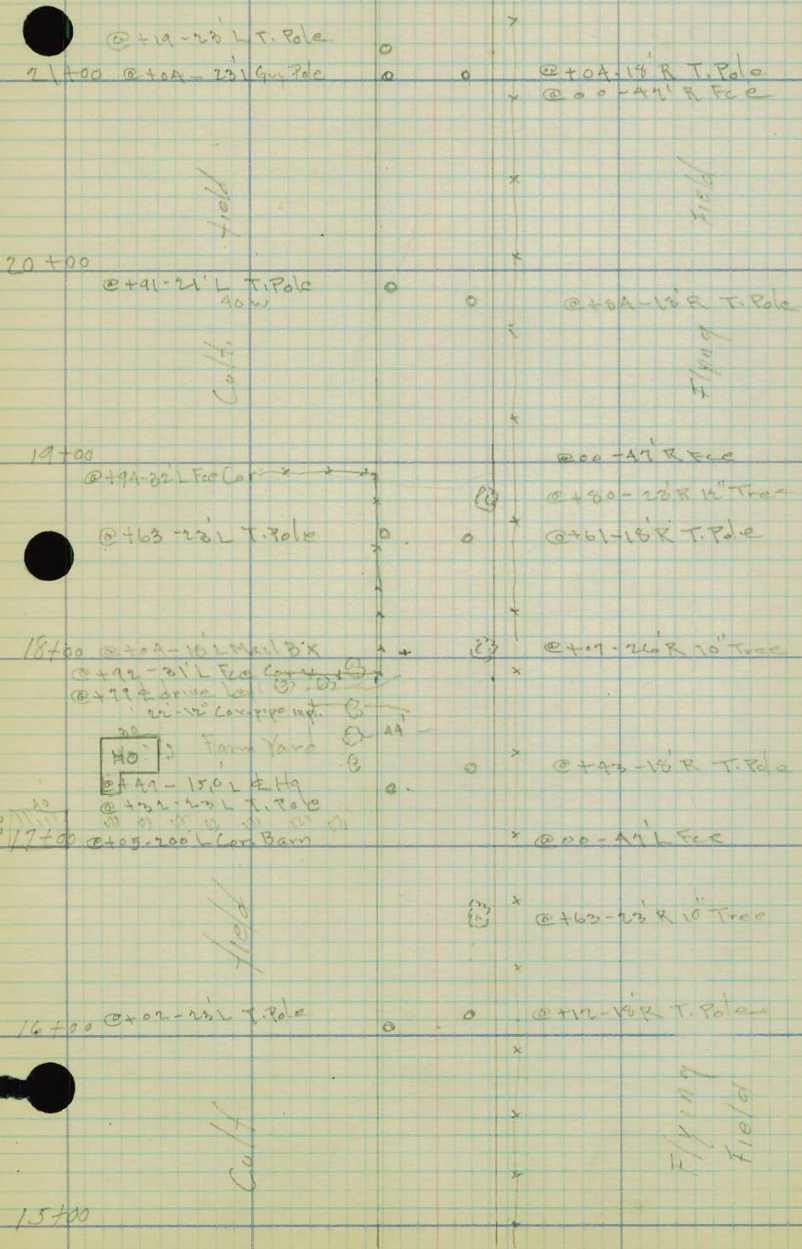 @ +19-23' L T. Pole
21+00 @ +04 - 23' L Guy Pole @ +04-18' R T. Pole
@ 00 -47' R Fce
Field Field
20+00
@ +91-21' L T. Pole
40W
@ +84-18' R T. Pole
Cult. Flying
19+00 @ 00 -47' R Fce
@ +94-32' L Fce Cor
@ +80 - 23' R 12" Tree
@ +63 -23' L T. Pole @ +61-18' R T. Pole
18+00 @ +04-18' L Mail BX @ +07-26' R 10" Tree
@ +92 -31' L Fce Cor
@ +77 ¢ drive
22'-12" Cor. pipe
44'
30
HO Farm Yard
@ +43-18' R T. Pole
@ +49 - 150' L
@ +32-23' L T. Pole
40
17+00 @ +05-200' L Cor. Barn @ 00 -47' L Fce
Field @ +63-23' R 10" Tree
16+00 @ +02-23' L T. Pole @ +12-18' R T. Pole
Cult Flying Field
15+00